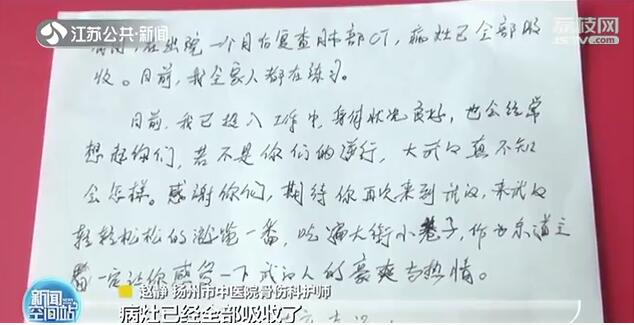 江苏公共·新闻
荔枝网
JSTV.COM
在出院一个月后复查肺部CT，病灶已全部吸
收。目前，我全家人都在练习。
目前，我已投入工作中，身体状况良好，也会经常
想起你们，若不是你们的逆行，大武汉真不知
会怎样。感谢你们，期待你再次来到武汉，来武汉
轻轻松松的游览一番，吃遍大街小巷子，作为东道主
一定让你感受一下武汉人的豪爽与热情。
新闻空间站
赵静 扬州市中医院骨伤科护师
病灶已经全部吸收了